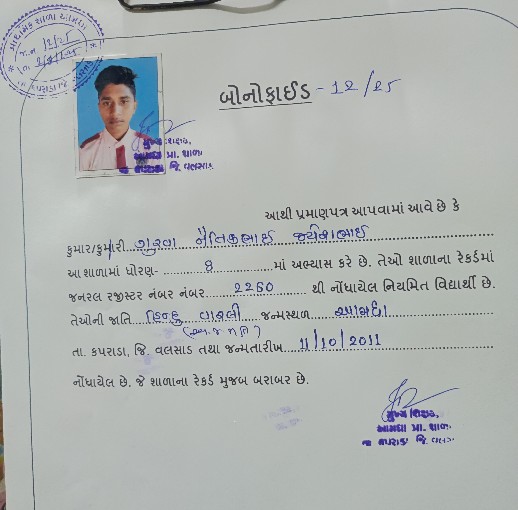 બોનોફાઈડ - 12/25
મુખ્ય શિક્ષક,
આમધા પ્રા. શાળા
તા કપરાડા જિ. વલસાડ
આથી પ્રમાણપત્ર આપવામાં આવે છે કે
કુમાર/કુમારી ગુરવ નૈતિકભાઈ જયેશભાઈ
આ શાળામાં ધોરણ- 8 માં અભ્યાસ કરે છે. તેઓ શાળાના રેકર્ડમાં
જનરલ રજીસ્ટર નંબર નંબર 2260 થી નોંધાયેલ નિયમિત વિદ્યાર્થી છે.
તેઓની જાતિ હિન્દુ વારલી જન્મસ્થળ આમધા
(અ.જ.જાતિ)
તા. કપરાડા, જિ. વલસાડ તથા જન્મતારીખ 11/10/2011
નોંધાયેલ છે. જે શાળાના રેકર્ડ મુજબ બરાબર છે.
મુખ્ય શિક્ષક,
આમધા પ્રા. શાળા
તા કપરાડા જિ. વલસાડ